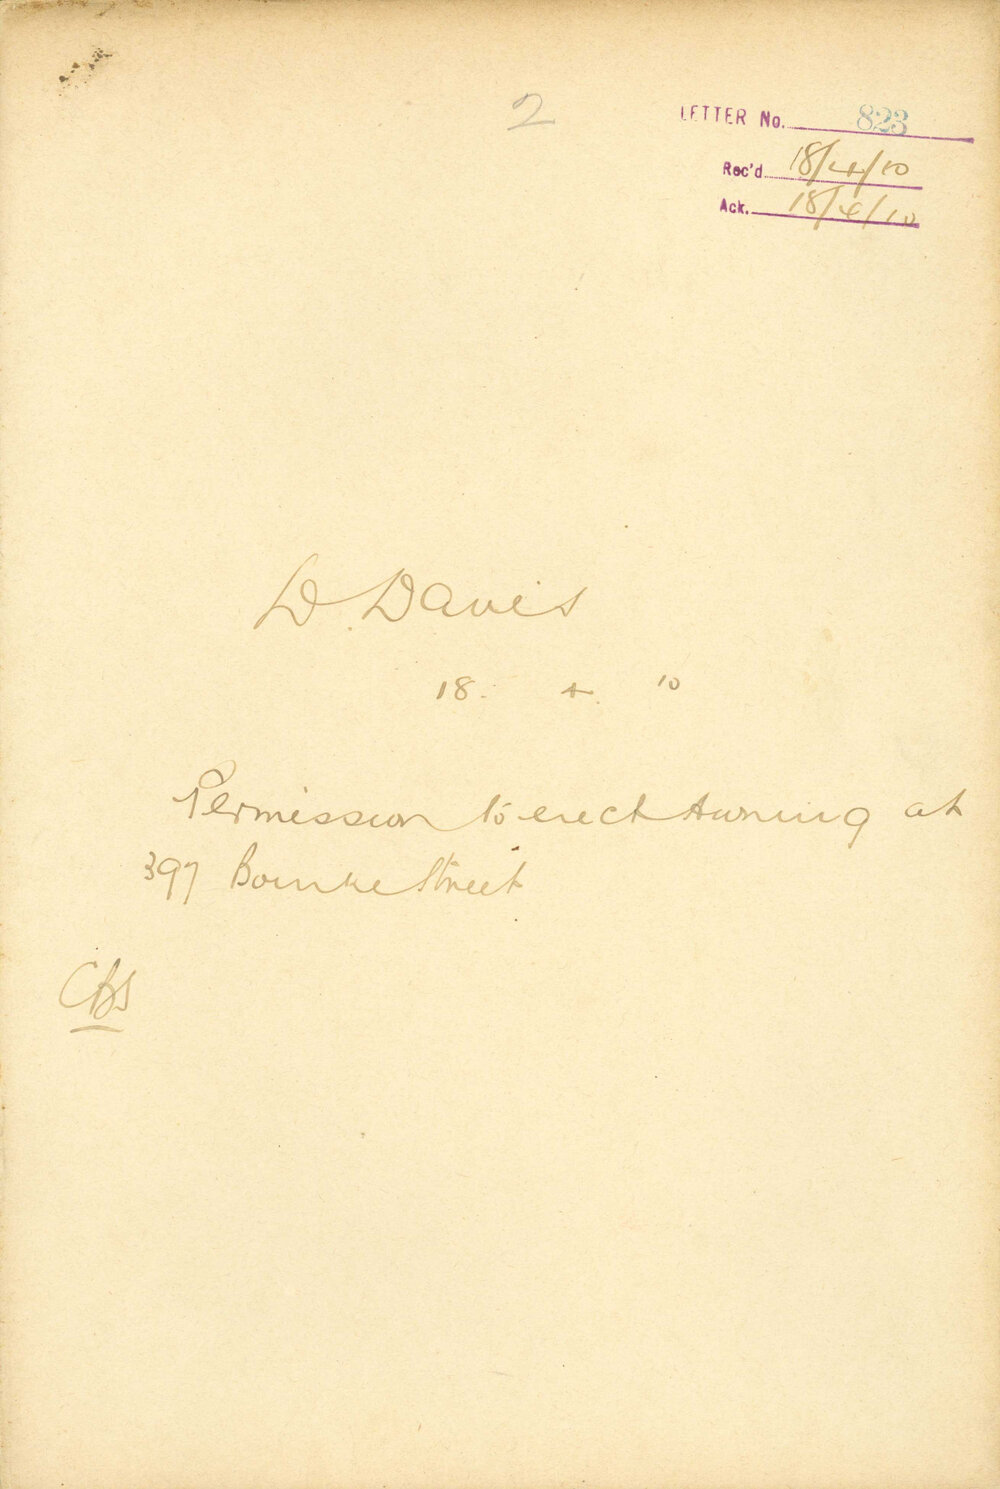 2
LETTER No. 823
Rec'd 18/4/10
Ack. 18/4/10
D. Davis
18. 4. 10
Permission to erect Awning at
397 Bourke Street
CBS